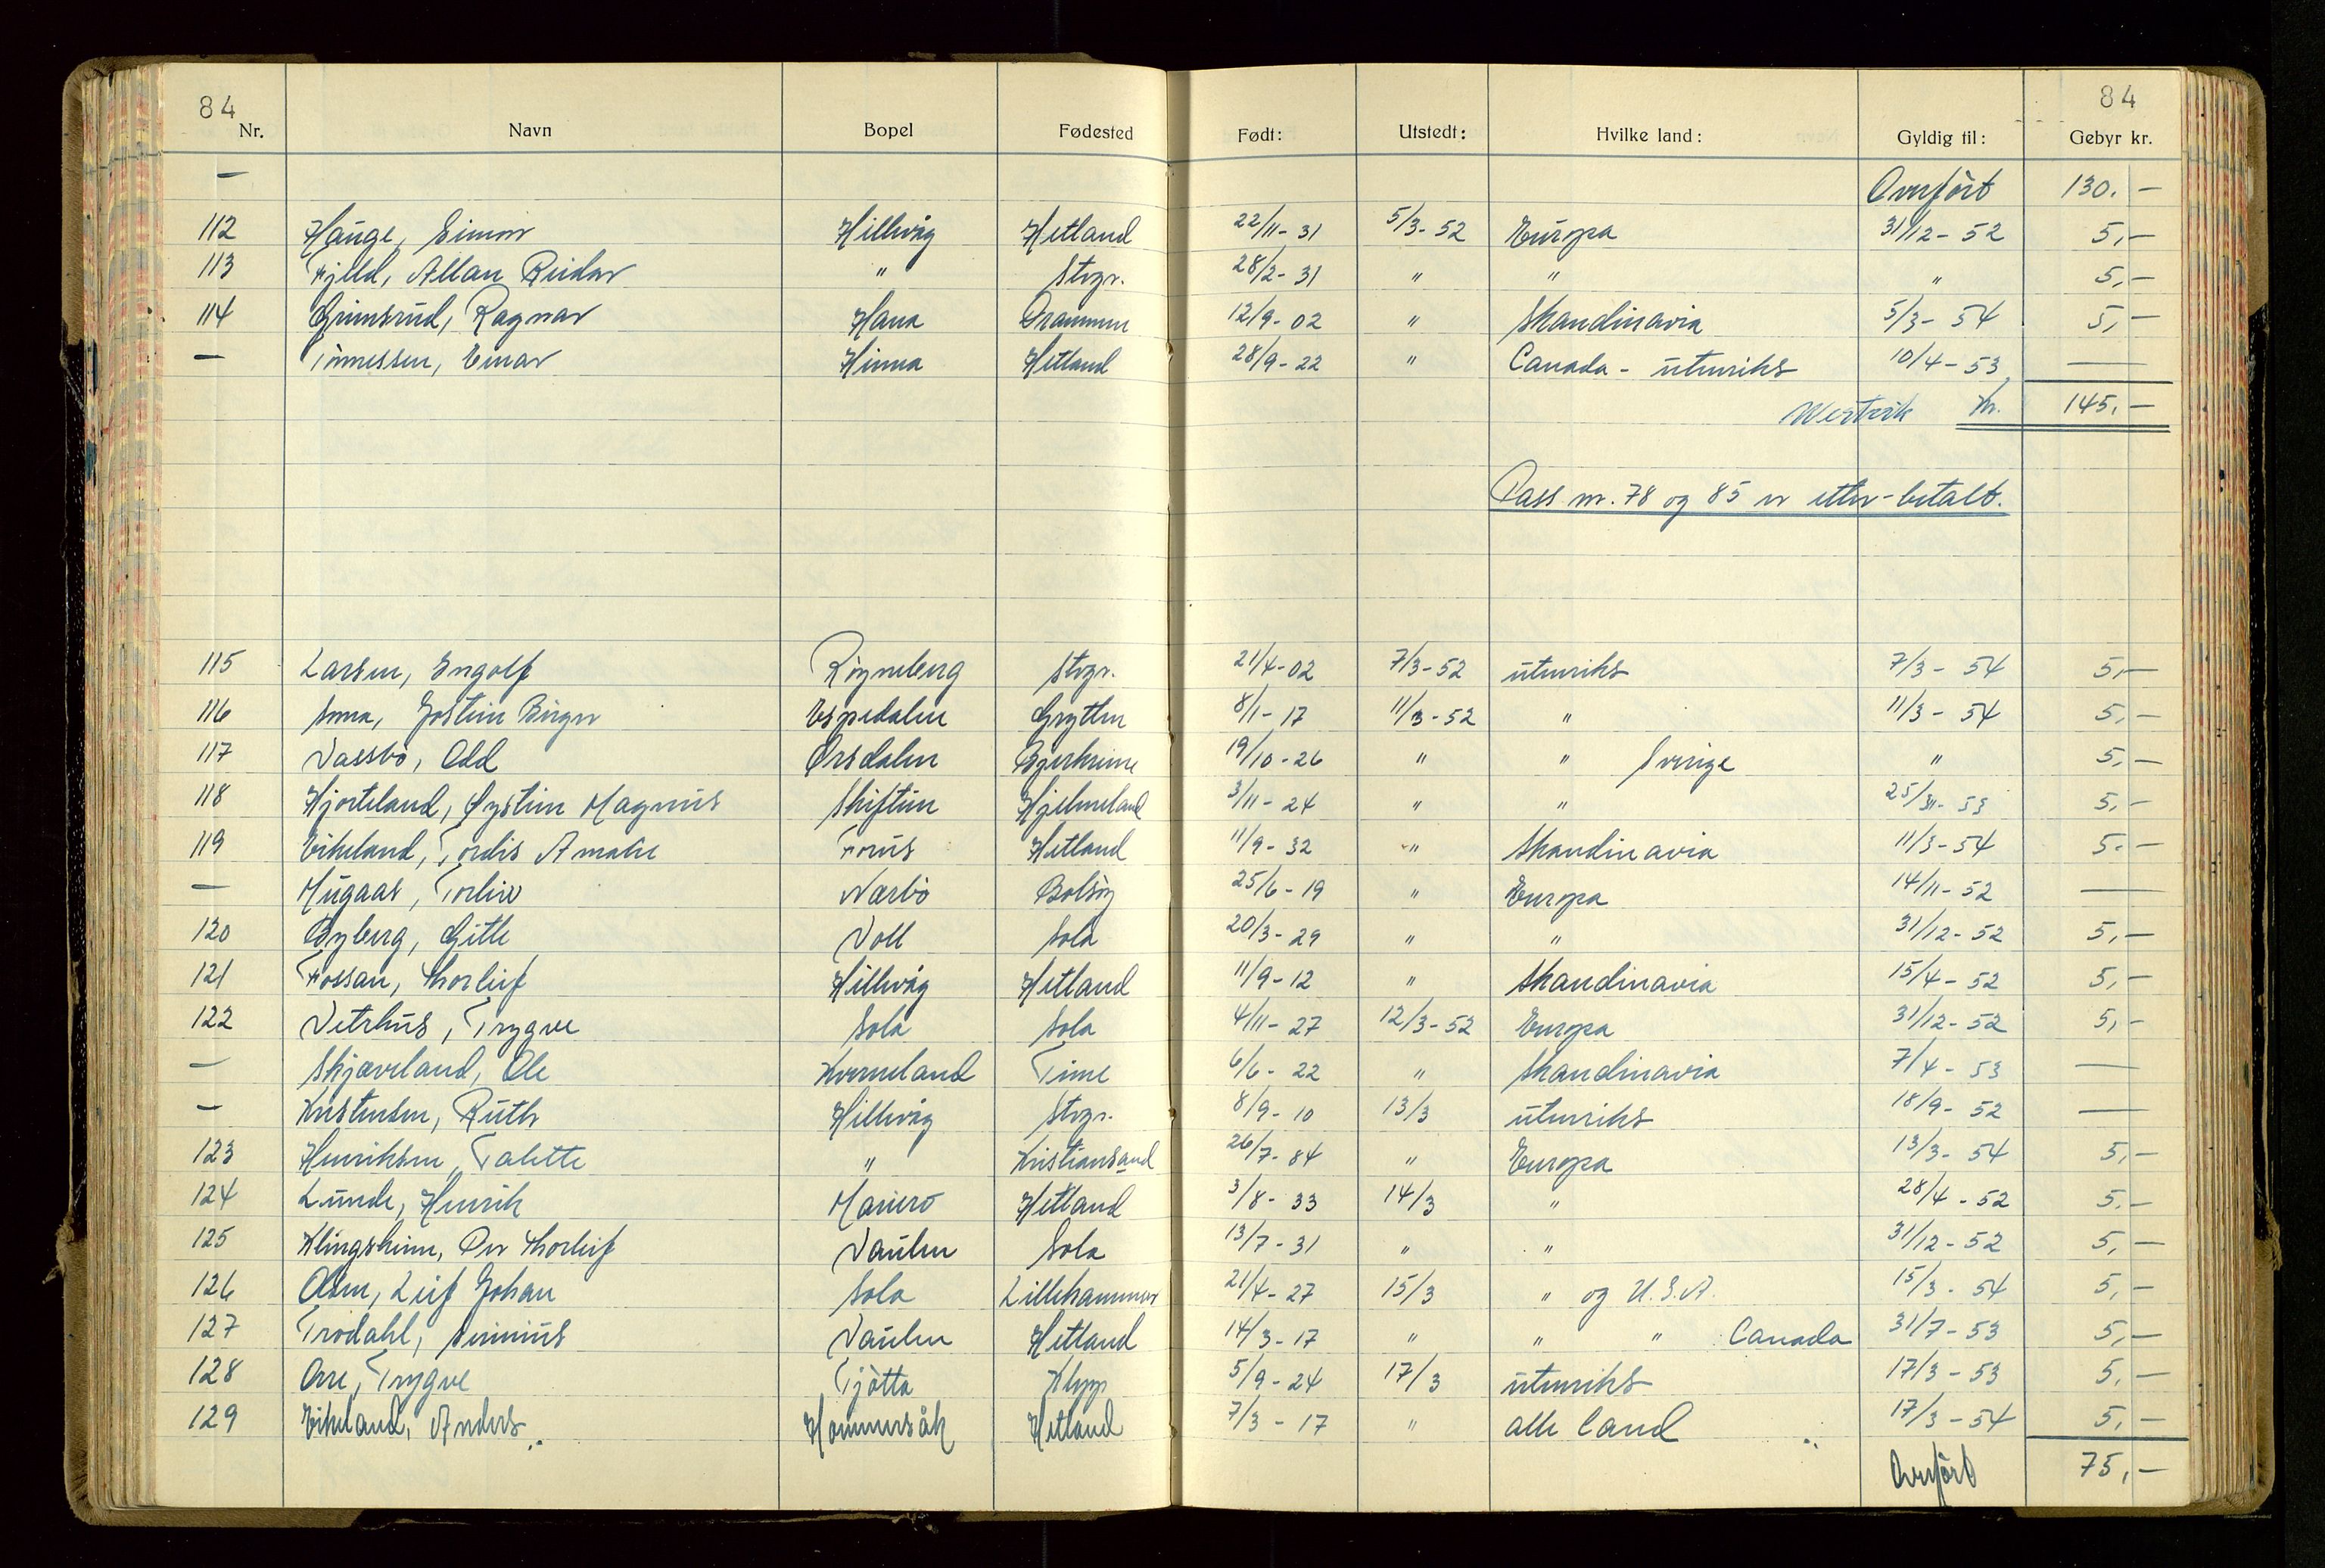 84 84
Nr. Navn Bopel Fødested Født: Utstedt: Hvilke land: Gyldig til: Gebyr kr.
— Overført 130.—
112 Hauge, Simon Hillevåg Hetland 22/11-31 5/3-52 Europa 31/12-52 5,—
113 Fjeld, Allan Reidar " Stvgr. 28/2-31 " " " 5,—
114 Grimsrud, Ragnar Hana Drammen 12/9-02 " Skandinavia 5/3-54 5,—
— Tønnessen, Einar Hinna Hetland 28/9-22 " Canada - utenriks 10/4-53 —
Westvik Kr. 145,—
Pass nr. 78 og 85 er etter-betalt.
115 Larsen, Ingolf Røyneberg Stvgr. 21/4-02 7/3-52 utenriks 7/3-54 5,—
116 Soma, Jostein Birger Espedalen Grytten 8/1-17 11/3-52 " 11/3-54 5,—
117 Vassbø, Odd Ørsdalen Bjerkreim 19/10-26 " " Sverige " 5,—
118 Hjorteland, Øystein Magnus Skiftun Hjelmeland 3/11-24 " " 5,—
119 Eikeland, Tordis Amalie Forus Hetland 11/9-32 " Skandinavia 11/3-54 5.—
— Mugaas, Torleiv Nærbø Bolsøy 25/6-19 " Europa 14/11-52 —
120 Byberg, Gitle Voll Sola 20/3-29 " " 31/12-52 5,—
121 Fossan, Thorleif Hillevåg Hetland 11/9-12 " Skandinavia 15/4-52 5,—
122 Vetrhus, Trygve Sola Sola 4/11-27 12/3-52 Europa 31/12-52 5,—
— Skjæveland, Ole Kverneland Time 6/6-22 " Skandinavia 7/4-53 —
— Kristensen, Ruth Hillevåg Stvgr. 8/9-10 13/3 utenriks 18/9-52 —
123 Henriksen, Talette " Kristiansand 26/7-84 " Europa 13/3-54 5,—
124 Lunde, Henrik Mariero Hetland 3/8-33 14/3 " 28/4-52 5.—
125 Klingsheim, Per Thorleif Vaulen Sola 13/7-31 " " 31/12-52 5,—
126 Olsen, Leif Johan Sola Lillehammer 21/4-27 15/3 " og U.S.A. 15/3-54 5,—
127 Trodahl, Severinus Vaulen Hetland 14/3-17 " " " Canada 31/7-53 5,—
128 Orre, Trygve Tjøtta Klepp 5/9-24 17/3 utenriks 17/3-53 5,—
129 Eikeland, Anders Hommersåk Hetland 7/3-17 " alle land 17/3-54 5,—
Overført 75,—